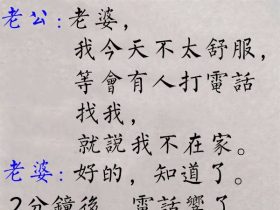 老公:老婆,
我今天不太舒服,
等會有人打電話
找我,
就說我不在家。
老婆:好的,知道了。
2分鐘後,電話響了